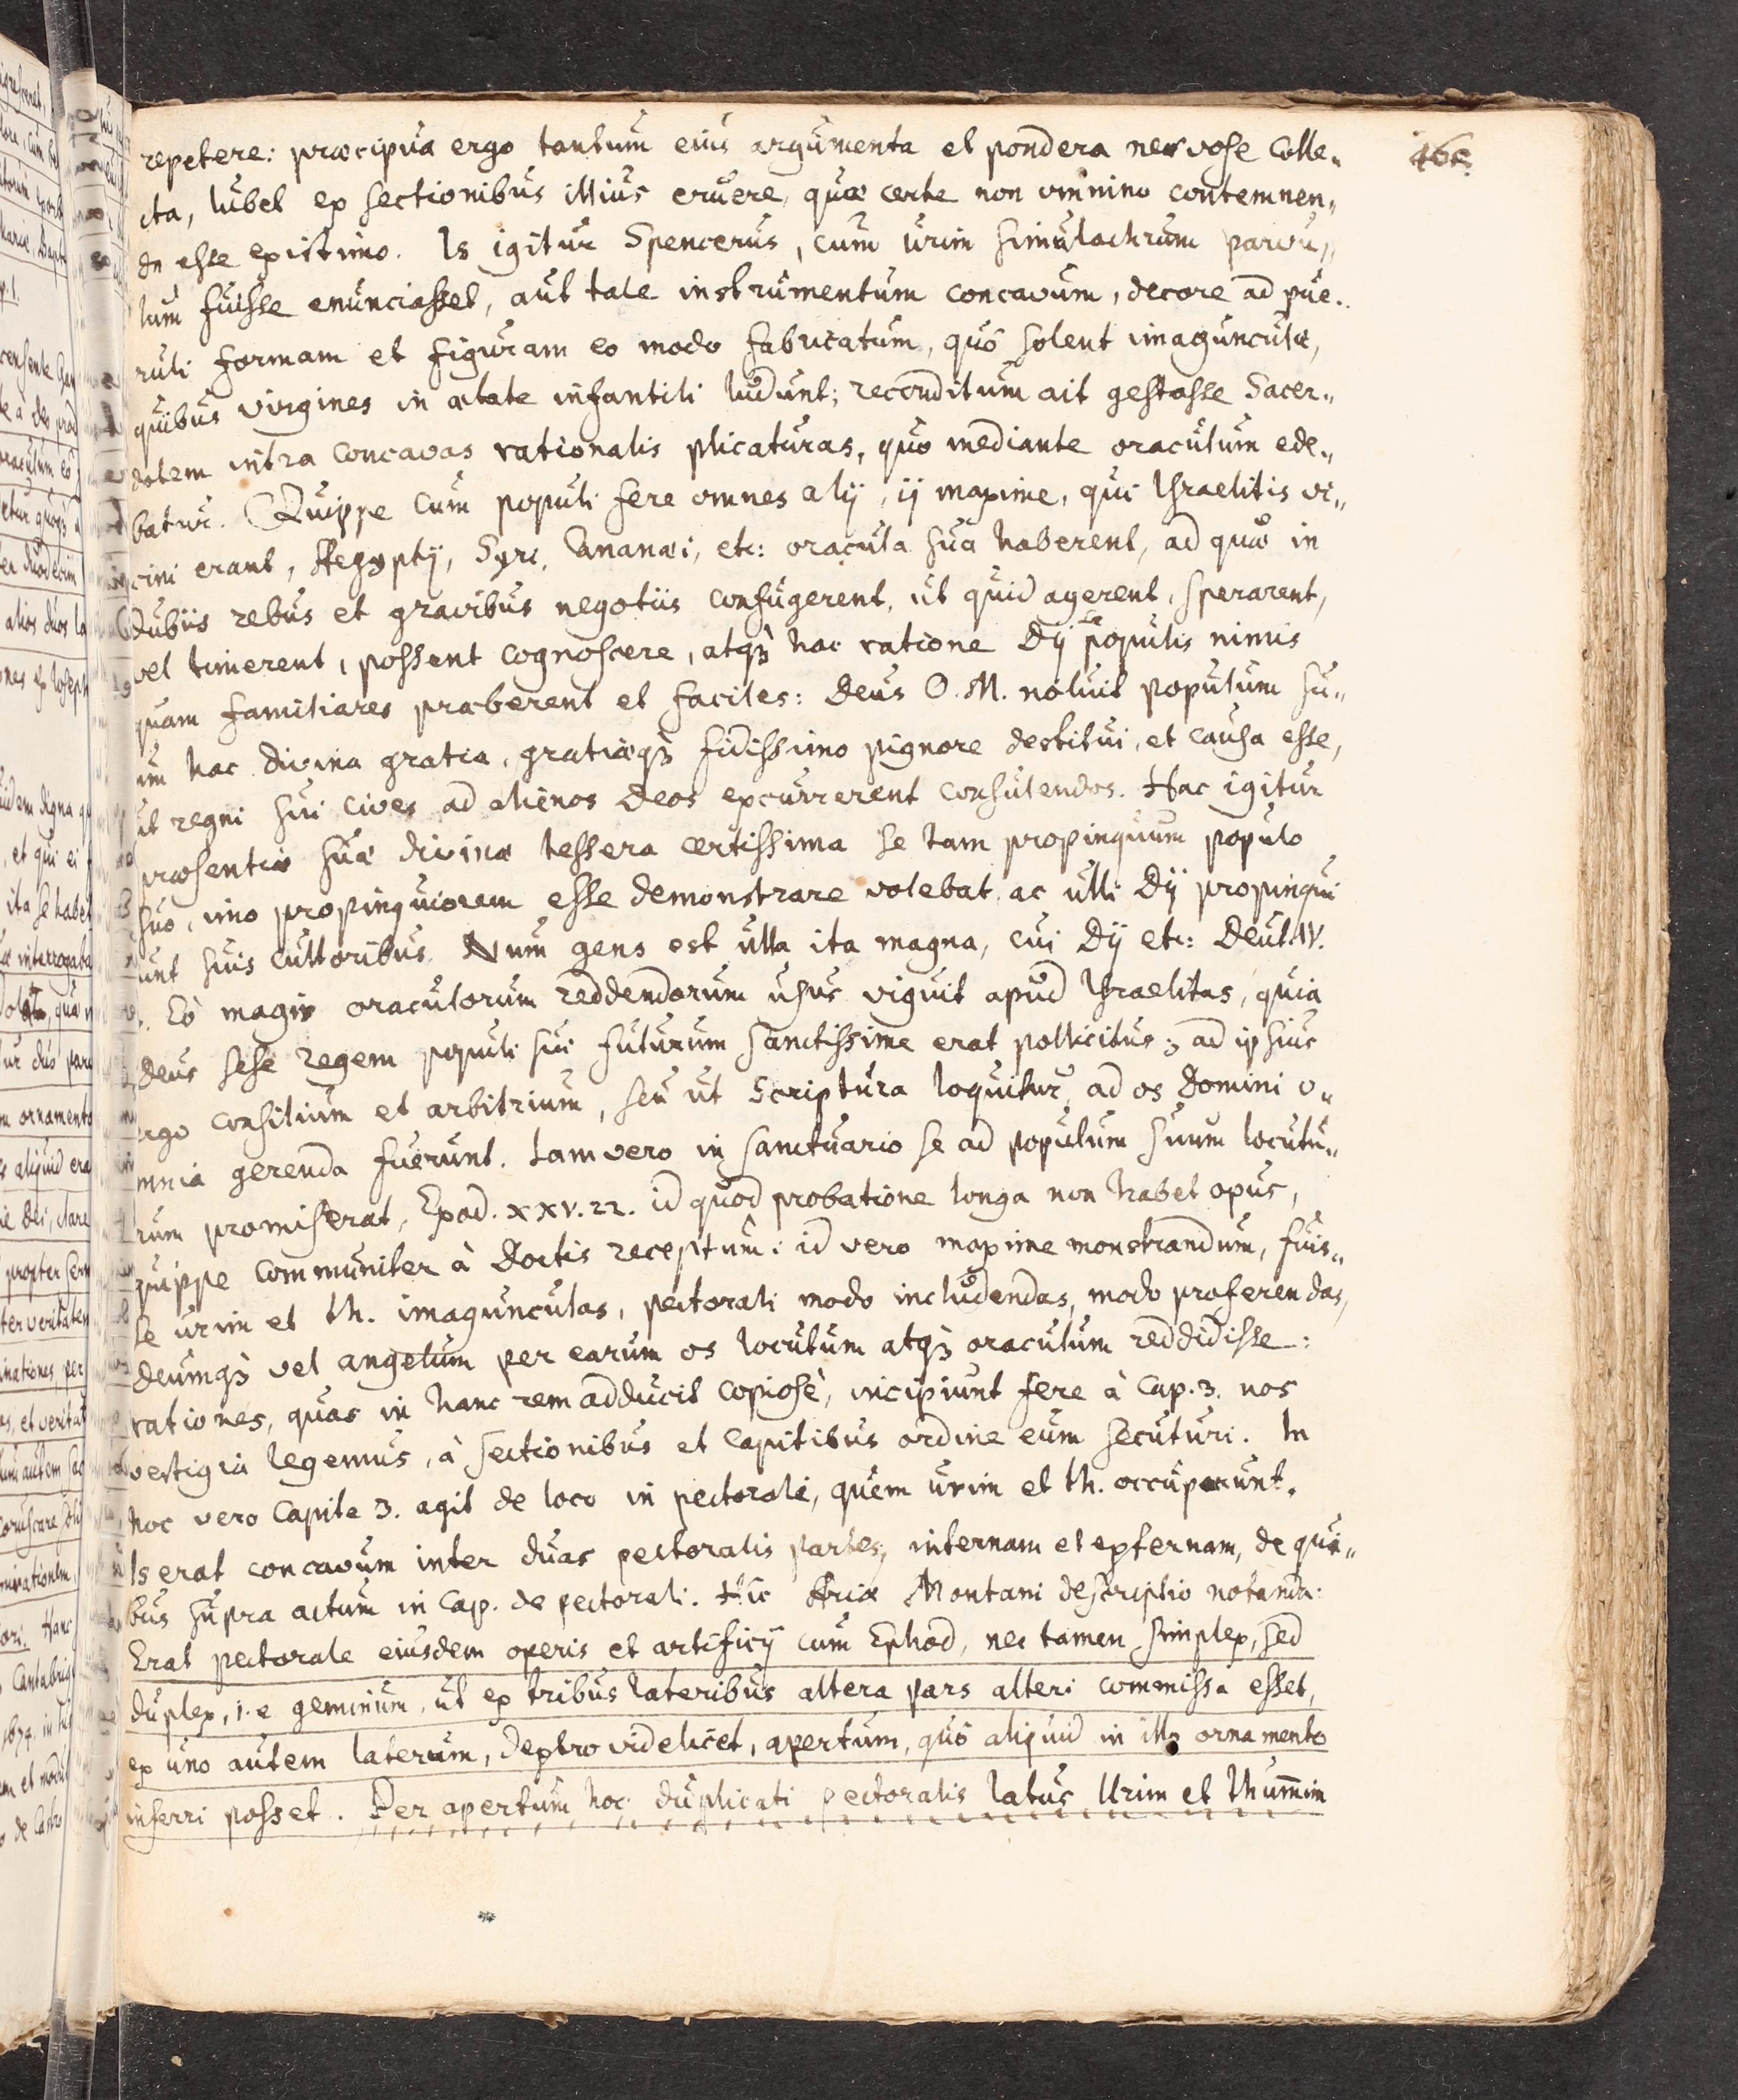 465.
repetere: præcipua ergo tantum eius argumenta et pondera nervose colle„
cta, lubet ex sectionibus illius eruere, quæ certe non omnino contemnen„
da esse existimo. Is igitur Spencerus, cum urim simulachrum parvu„
lum fuisse enunciasset, aut tale instrumentum concavum, decore ad pue„
ruli formam et figuram eo modo fabricatum, quo solent imagunculæ,
quibus virgines in ætate infantili ludunt; reconditum ait gestasse Sacer„
dotem intra concavas rationalis plicaturas, quo mediante oraculum ede„
batur. Quippe cum populi fere omnes alij, ij maxime, qui Israelitis vi„
cini erant, Aegyptij, Syri, Cananæi, etc: oracula sua haberent, ad quæ in
dubiis rebus et gravibus negotiis confugerent, ut quid agerent, sperarent,
vel timerent, possent cognoscere, atqȝ hac ratione Dij se populis nimis
quam familiares præberent et faciles: Deus O. M. noluit populum su„
um hac divina gratia, gratiæqȝ fidissimo pignore destitui, et causa esse,
ut regni sui cives ad alienos Deos excurrerent consulendos. Hac igitur
præsentiæ suæ divinæ tessera certissima se tam propinquum populo
suo, imo propinquiorem esse demonstrare volebat, ac ulli Dij propinqui
sunt suis cultoribus. Num gens est ulla ita magna, cui Dij etc: Deut. IV.
Eò magis oraculorum reddendorum usus viguit apud Israelitas, quia
Deus sese regem populi sui futurum sanctissime erat pollicitus; ad ipsius
ergo consilium et arbitrium, seu ut Scriptura loquitur, ad os Domini o„
mnia gerenda fuerunt. Iam vero in sanctuario se ad populum suum locutu„
rum promiserat, Exod. XXV. 22. id quod probatione longa non habet opus,
quippe communiter à Doctis receptum: id vero maxime monstrandum, fuis„
se urim et th. imagunculas, pectorali modo includendas, modo proferendas,
deumqȝ vel angelum per earum os locutum atqȝ oraculum reddidisse:
rationes, quas in hanc rem adducit copiosè, incipiunt fere à Cap. 3. nos
vestigia legemus, à sectionibus et capitibus ordine eum secuturi. In
hoc vero Capite 3. agit de loco in pectorale, quem urim et th. occuparunt.
Is erat concavum inter duas pectoralis partes, internam et externam, de qui„
bus supra actum in Cap. de pectorali. Hic Ariæ Montani descriptio notanda:
Erat pectorale eiusdem operis et artificij cum Ephod, nec tamen simplex, sed
duplex, i. e geminum, ut ex tribus lateribus altera pars alteri commissa esset,
ex uno autem laterum, dextro videlicet, apertum, quo aliquid in illo ornamento
inferri posset. Per apertum hoc duplicati pectoralis latus Urim et Thum̄im